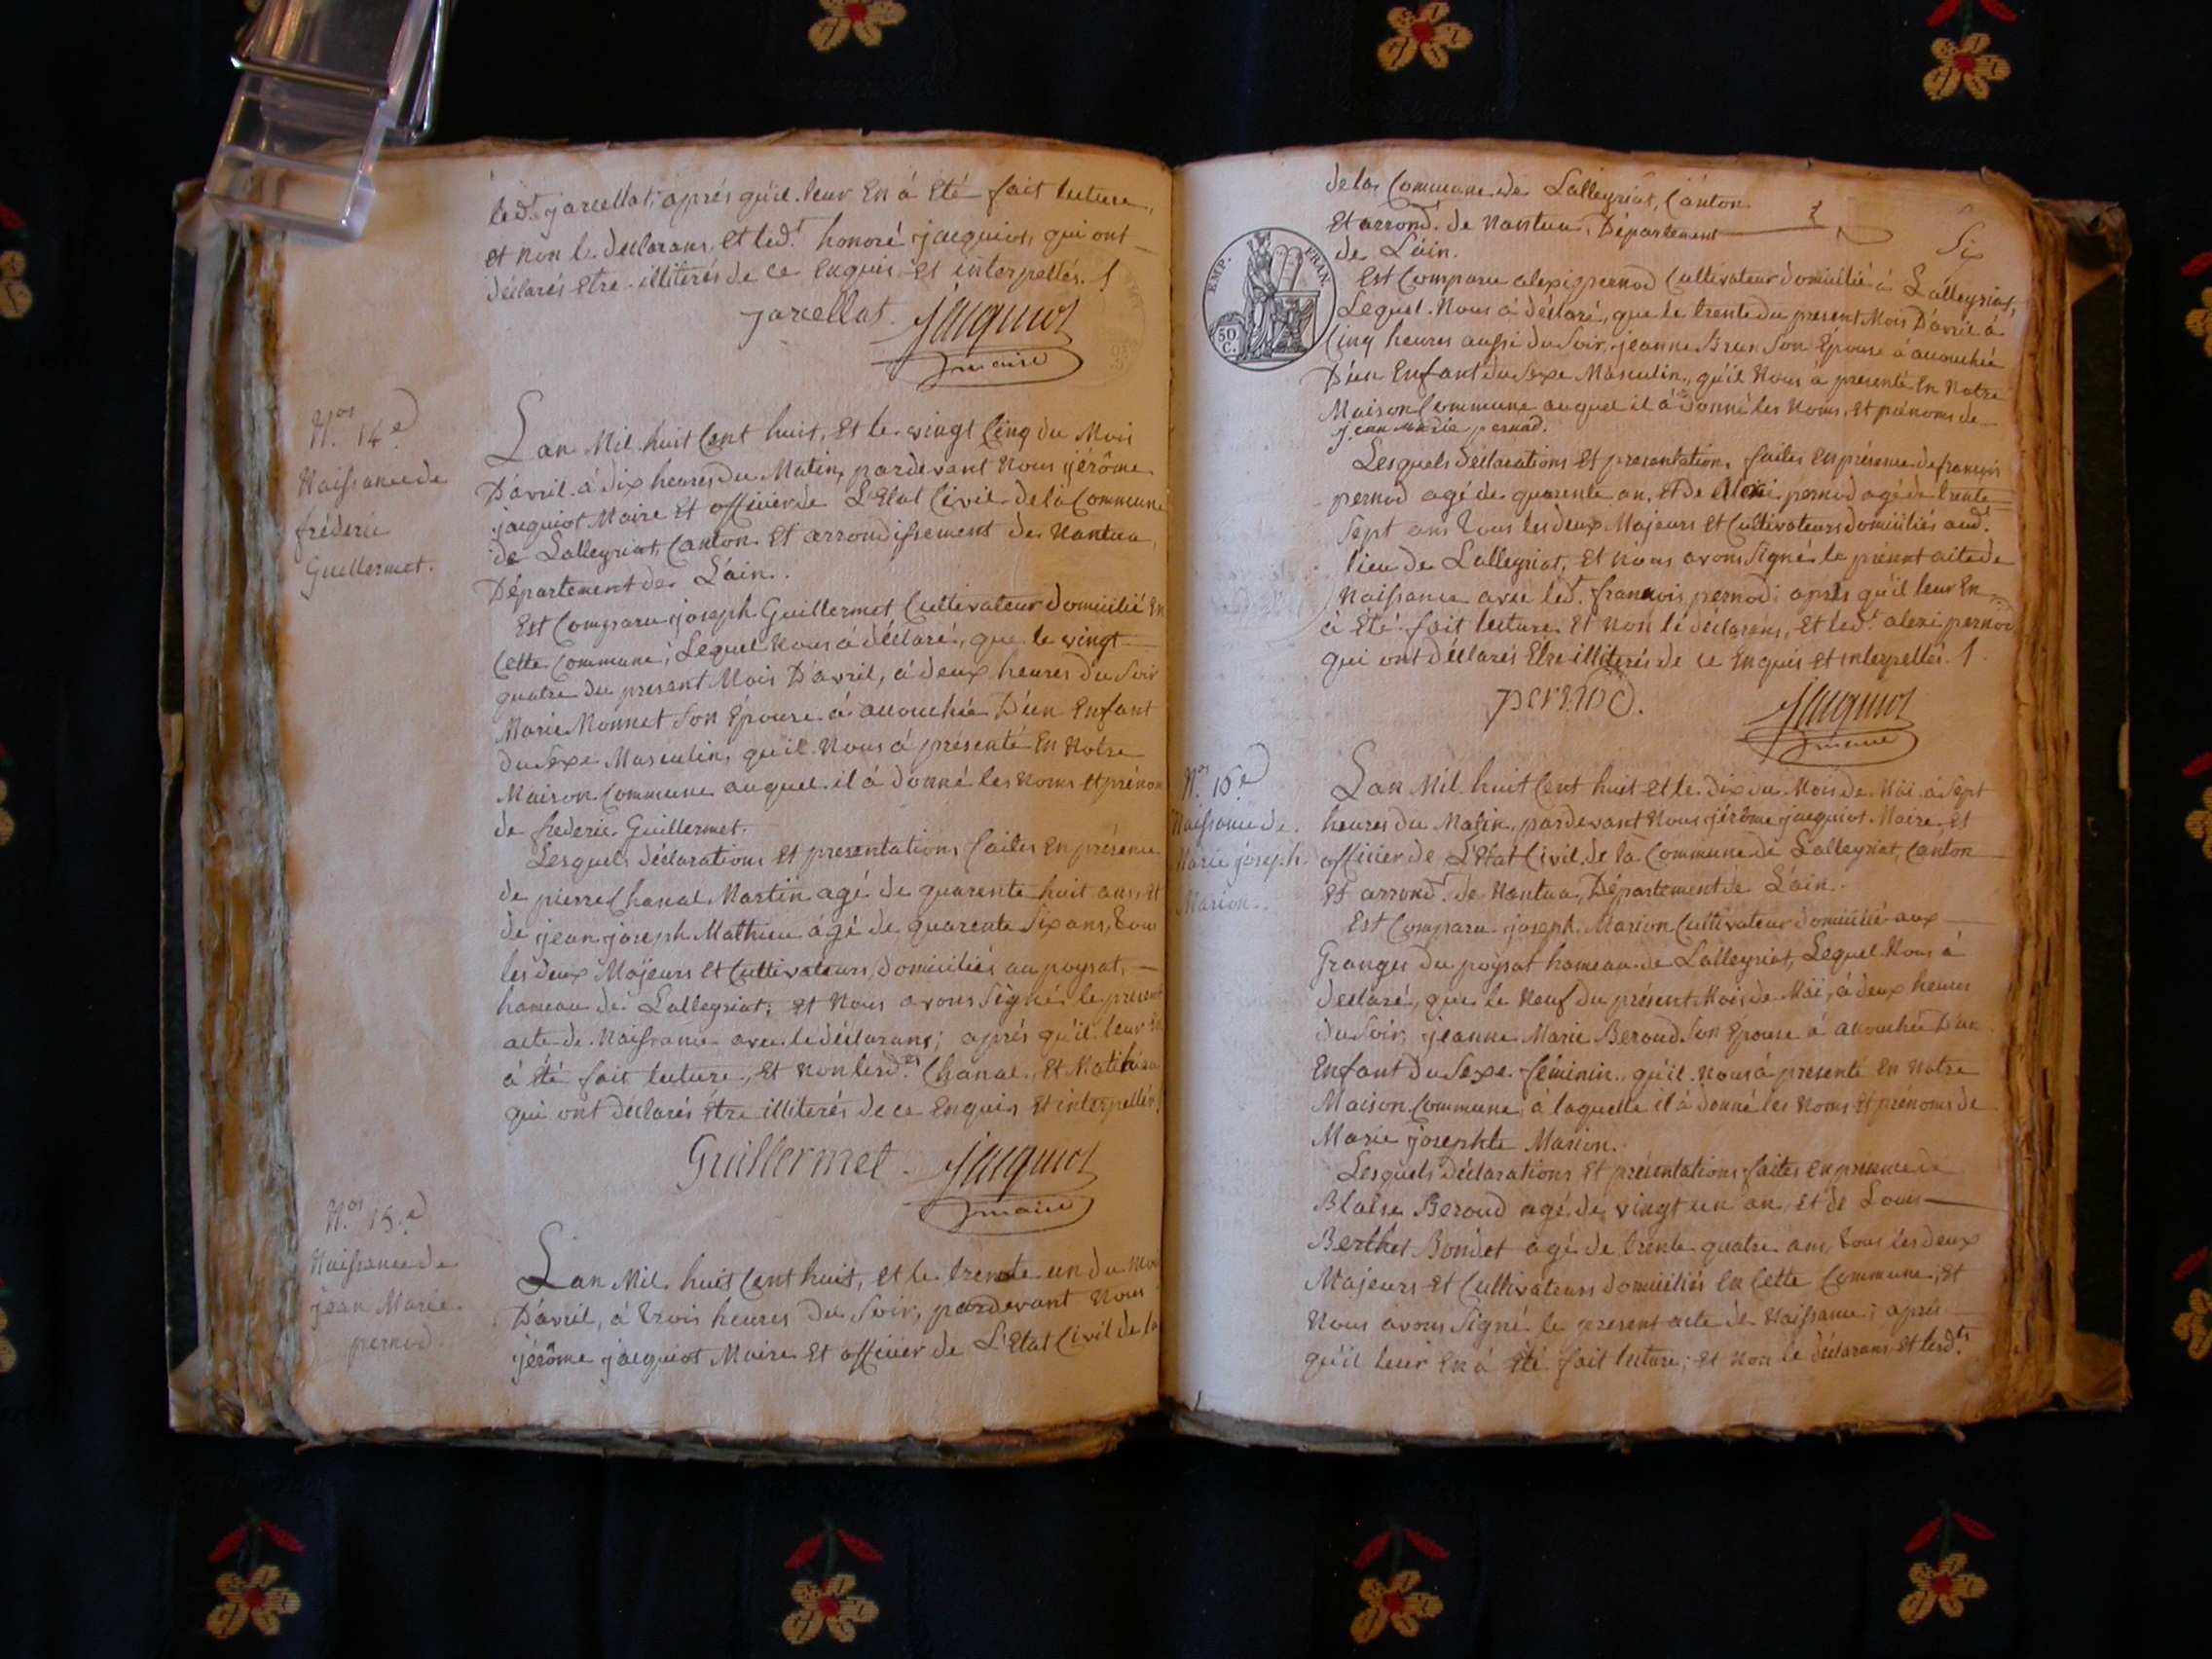 led.t jarcellat; aprés qu'il leur En à Eté fait lecture,
et non le declarans, et led.t honoré jacquiot, qui ont
déclarés Etre illiterés de ce Enquis, Et interpellés. /
jarcellat. Jacquiot
maire
N.os 14.e
Naissance de
fréderic
Guillermet.
Lan Mil huit Cent huit, Et le vingt Cinq du Mois
D'avril à dix heures du Matin, pardevant Nous jérôme
jacquiot Maire Et officier de L'Etat Civil de la Commune
de Lalleyriat, Canton Et arrondissement de Nantua,
Département de L'ain.
Est Comparu joseph Guillermet Cultivateur domicilié En
Cette Commune; Lequel Nous à déclaré, que le vingt
quatre du present Mois D'avril, à deux heures du Soir
Marie Monnet Son Epouse à accouchée D'un Enfant
du Sexe Masculin, qu'il Nous à présenté En Notre
Maison Commune auquel il à donné les Noms et prénom
de frederic Guillermet.
Lesquels déclarations Et presentations faites En présence
de pierre Chanal Martin agé de quarente huit ans, Et
de jean joseph Mathieu agé de quarente Six ans, tous
les deux Majeurs Et Cultivateurs domiciliés au poysat,
hameau de Lalleyriat; Et Nous avons Signés le présent
acte de Naissance avec le déclarans; aprés qu'il leur En
à été fait lecture, Et Non lesd.ts Chanal, Et Mathieu
qui ont déclarés Etre illiterés de ce Enquis Et interpellés /
Guillermet. Jacquiot
maire
N.os 15.e
Naissance de
jean Marie
pernod.
Lan Mil huit Cent huit, et le trente un du Mois
D'avril, à trois heures du Soir, pardevant Nous
jérôme jacquiot Maire Et officier de L'Etat Civil de la
Six
de la Commune de Lalleyriat, Canton
Et arrond.t de Nantua, Département
de L'ain.
EMP. FRAN.
50 C.
Est Comparu alexi pernod Cultivateur domicilié à Lalleyriat,
Lequel Nous à déclaré, que le trente du present Mois D'avril à
Cinq heures aussi du Soir, jeanne Brun Son Epouse à accouchée
D'un Enfant du Sexe Masculin, qu'il Nous à presenté En Notre
Maison Commune auquel il à donné les Noms, et prénoms de
jean Marie pernod.
Lesquels déclarations Et presentations faites En présence de françois
pernod agé de quarente an, Et de alexi pernod agé de trente
Sept ans tous les deux Majeurs Et Cultivateurs domiciliés aud.t
lieu de Lalleyriat, Et Nous avons Signé le présent acte de
Naissance avec led.t francois pernod; après qu'il leur En
à Eté fait lecture Et Non le déclarans, Et led.t alexi pernod
qui ont déclarés Etre illiterés de ce Enquis Et interpellés. /
pernod. Jacquiot
maire
N.os 16.e
Naissance de
Marie joseph.
Marion.
Lan Mil huit Cent huit et le dix du Mois de Mai à Sept
heures du Matin, pardevant Nous jérôme jacquiot Maire, et
officier de L'Etat Civil de la Commune de Lalleyriat, Canton
Et arrond.t de Nantua, Département de L'ain.
Est Comparu joseph Marion Cultivateur domicilié aux
Granges du poysat hameau de Lalleyriat, Lequel Nous à
declaré, que le Neuf du présent Mois de Mai, à deux heures
du Soir, jeanne Marie Beroud Son Epouse à accouchée D'un
Enfant du Sexe féminin, qu'il Nous à presenté En Notre
Maison Commune, à laquelle il à donné les Noms Et prénoms de
Marie josephte Marion.
Lesquels déclarations Et présentations faites En présence de
Blaise Beroud agé de vingt un an, et de Louis
Berthet Bondet agé de trente quatre ans, tous les deux
Majeurs Et Cultivateurs domiciliés En Cette Commune; Et
Nous avons Signé le present acte de Naissance; aprés
qu'il leur En à été fait lecture; Et Non le déclarans et lesd.ts